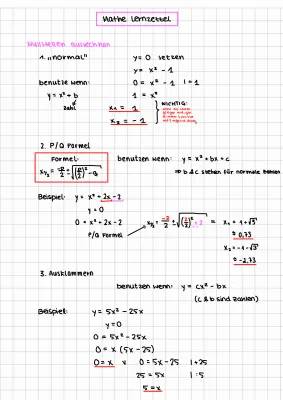 Mathe Lernzettel
Nullstellen ausrechnen
1. "normal"
y=0 setzen
y = x² - 1
benutze wenn:
0 = x² - 1 | +1
y = x² + b
1 = x²
Zahl
x₁ = 1
x₂ = -1
WICHTIG:
2. P/Q Formel
Formel:
x₁/₂ = -p/2 ± √((p/2)² - q)
benutzen wenn: y = x² + bx + c
⇒ b & c stehen für normale Zahlen
Beispiel: y = x² + 2x - 2
y = 0
0 = x² + 2x - 2
P/Q Formel
x₁/₂ = -2/2 ± √((2/2)² + 2) = x₁ = -1 + √3
≈ 0,73
x₂ = -1 - √3
≈ -2,73
3. Ausklammern
benutzen wenn: y = cx² - bx
(c & b sind Zahlen)
Beispiel: y = 5x² - 25x
y = 0
0 = 5x² - 25x
0 = x (5x - 25)
0 = x v 0 = 5x - 25 | +25
25 = 5x | :5
5 = x